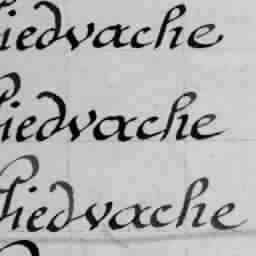 iedvache
iedvache
iedvache